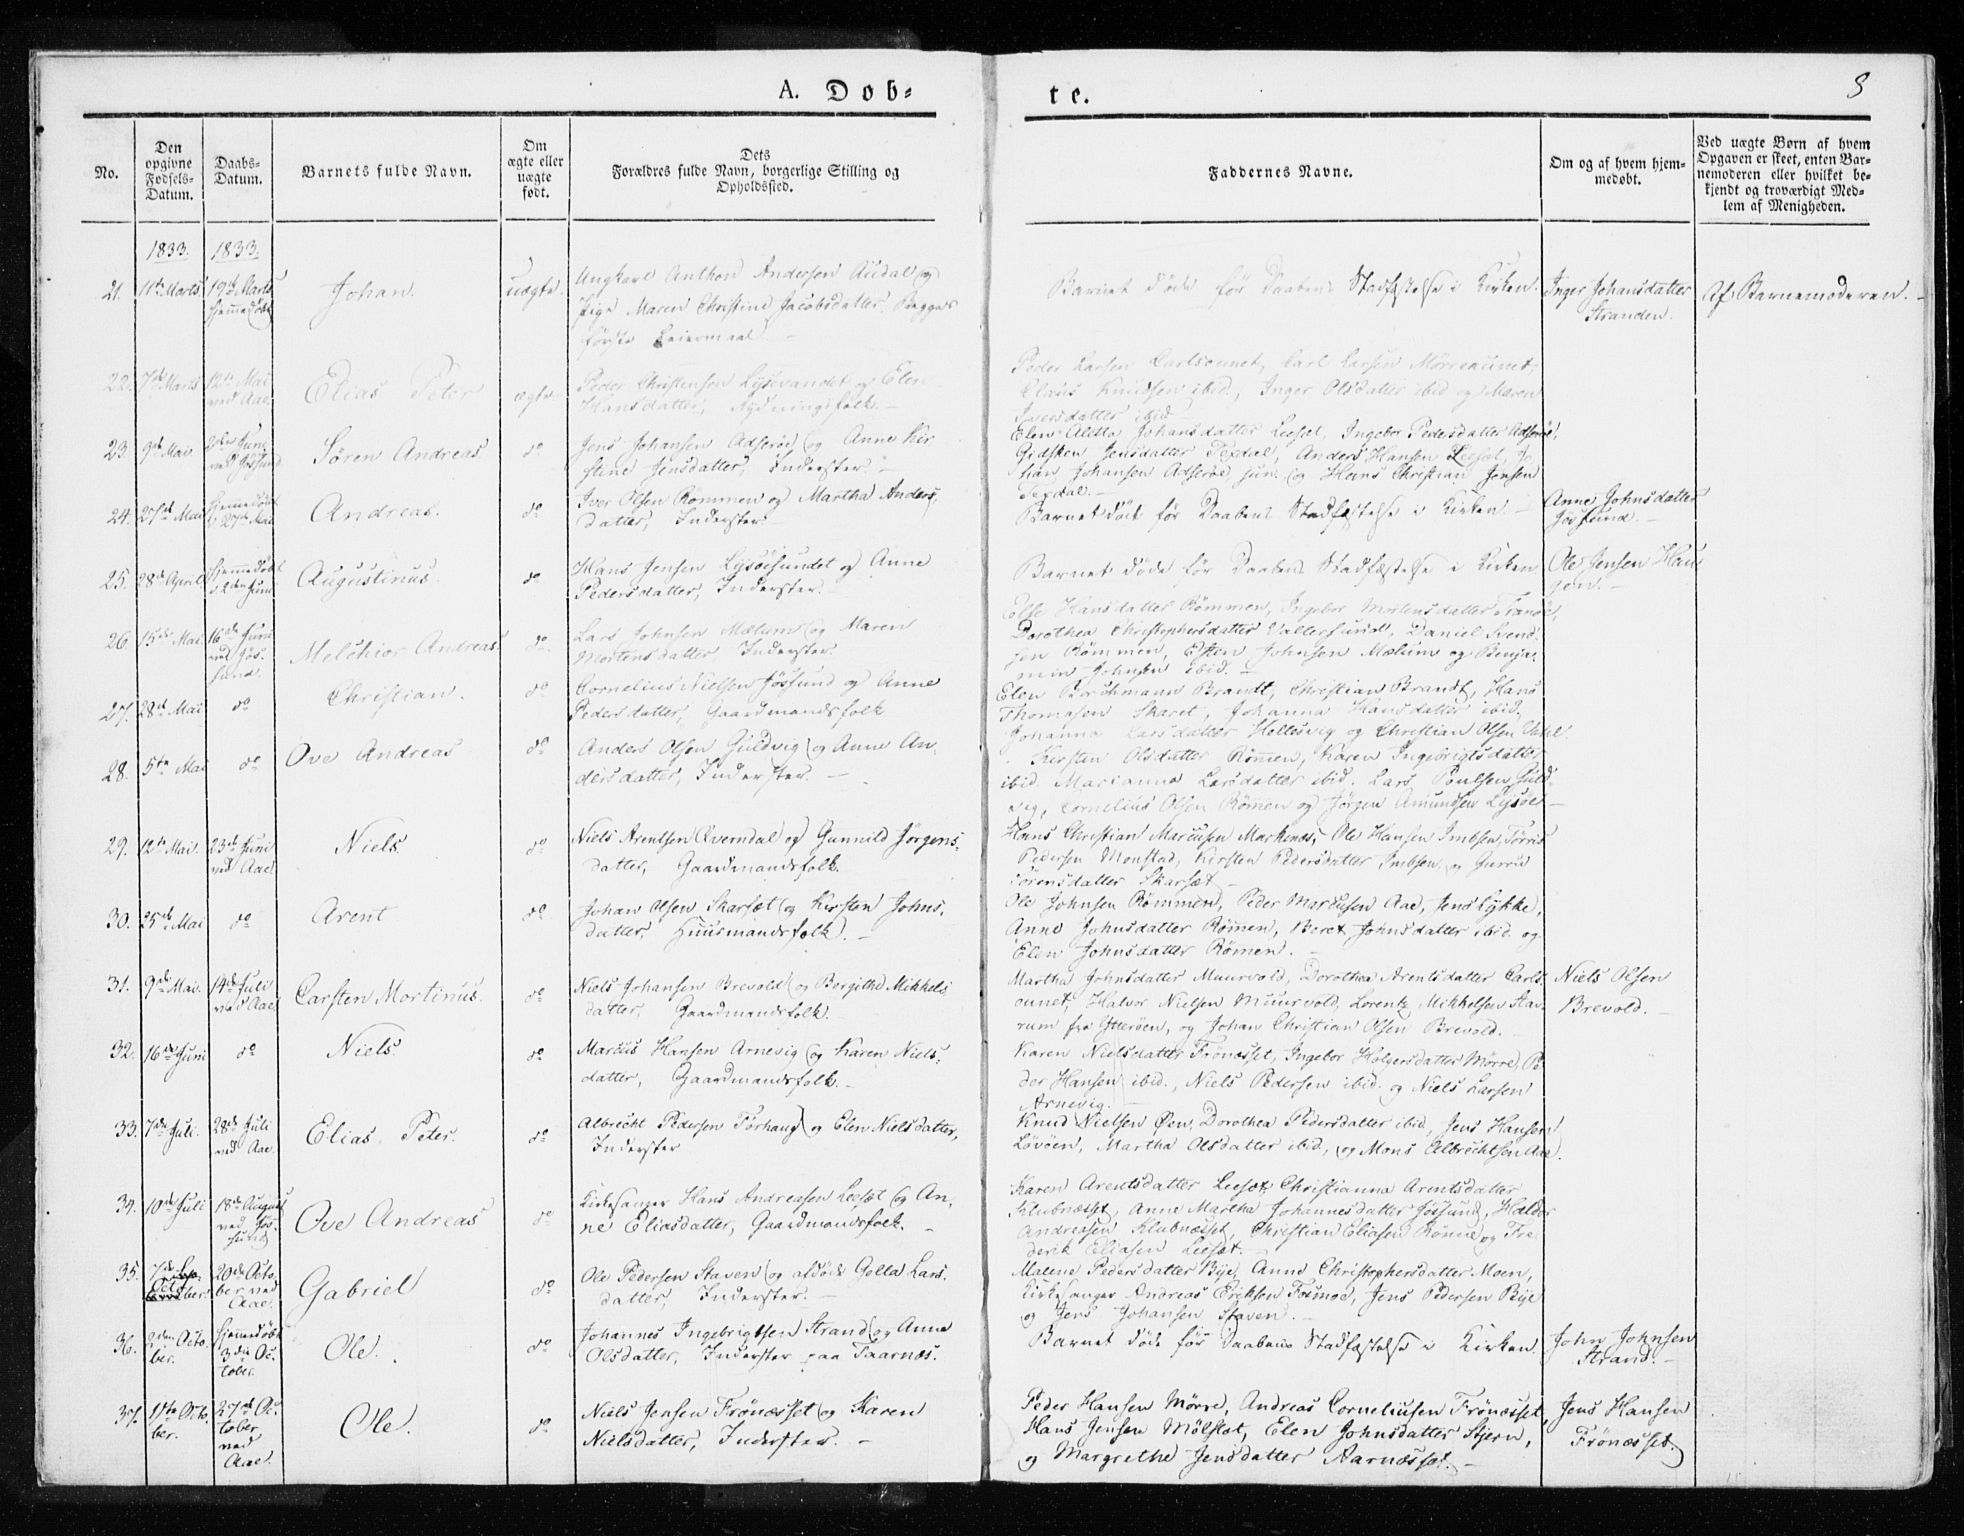 A. Døb-
te.
8
No.
Den opgivne Fødsels-Datum.
Daabs-Datum.
Barnets fulde Navn.
Om ægte eller uægte født.
Dets Forældres fulde Navn, borgerlige Stilling og Opholdssted.
Faddernes Navne.
Om og af hvem hjem-medøbt.
Ved uægte Børn af hvem Opgaven er skeet, enten Bar-nemoderen eller hvilket be-kjendt og troværdigt Med-lem af Menigheden.
1833. 1833.
21. 11te Marts 19de Marts hjemmedøbt
Johan.
uægte.
Ungkarl Anthon Andersen Audal og
Pige Maren Christine Jacobsdatter, Begges
første Leiermaal. –
Barnet døde før Daabens Stadfæstelse i Kirken.
Inger Johansdatter
Stranden.
Af Barnemoderen. –
22. 7de Marts 12te Mai ved Aae.
Elias Peter
ægte
Peder Christensen Lysevandet og Elen
Hansdatter, Rydningsfolk. –
Peder Larsen Carlsounet, Carl Larsen Mørreaunet,
Claus Knudsen ibid., Inger Olsdatter ibid og Maren
Iversdatter ibid
23. 9de Mai. 2den Juni ved Jøssund
Søren Andreas
do
Jens Johansen Adserøe og Anne Kir
stine Jensdatter, Inderster. –
Elen Aletta Johansdatter Leesæt, Ingebor Pedersdatter Adserøe,
Gidsken Jensdatter Texdal, Anders Hansen Leesæt,
Johansen Adserøe jun. og Hans Christian Jensen
Texdal. –
24. 27de Mai hjemmedøbt d. 27de Mai
Andreas.
do
Iver Olsen Rømmen og Martha Anders
datter, Inderster.
Barnet døde før Daabens Stadfæstelse i Kirken. –
Anne Johnsdatter
Jøssund. –
25. 28de April hjemmedøbt d. 2den Juni
Augustinus.
do
Hans Jensen Lysøesundet og Anne
Pedersdatter, Inderster. –
Barnet døde før Daabens Stadfæstelse i Kirken
Ole Jensen Hau
gen. –
26. 15de Mai 16de Juni ved Jøs-sund.
Melchior Andreas.
do
Lars Johnsen Mælum og Maren
Mortensdatter, Inderster.
Else Hansdatter Rømmen, Ingebor Mortensdatter
Dorothea Christophersdatter Vallersund, Daniel Svend
sen Rømmen, Esten Johnsen Mælum og Benja-
min Johnsen ibid. –
27. 28de Mai do
Christian.
do
Cornelius Nielsen Jøssund og Anne
Pedersdatter, Gaardmandsfolk
Elen Brandt, Christian Brandt, Hans
Thomasen Skaret, Johanna Hansdatter ibid,
Johanna Larsdatter Hellesvig og Christian Olsen
28. 5te Mai do
Ove Andreas
do
Anders Olsen Guldvig og Anne An-
dersdatter, Inderster. –
Kirsten Olsdatter Rømen, Karen Ingebrigtsdatter
ibid. Marianna Larsdatter ibid. Lars Poulsen Guld
vig, Cornelius Olsen Rømen og Jørgen Amundsen Lysøe
29. 12te Mai. 23de Juni ved Aae
Niels
do
Niels Arentsen Overndal og Gunnild Jørgens-
datter, Gaardmandsfolk.
Hans Christian Marcusen Markenæs, Ole Hansen Imbsen, Tørris
Pedersen Monstad, Kirsten Pedersdatter Imbsen, og Gurru
Sørensdatter Skarsæt –
30. 25de Mai do
Arent
do
Johan Olsen Skarsæt og Kirsten Johns-
datter, Huusmandsfolk. –
Ole Johnsen Rømmen, Peder Marcusen Aae, Jens Lykke,
Anne Johnsdatter Rømen, Beret Johnsdatter ibid. og
Elen Johnsdatter Rømen. –
31. 9de Mai. 14de Juli ved Aae
Carsten Mortinus.
do
Niels Johansen Brevold og Borgithe Mikkels
datter, Gaardmandsfolk. –
Martha Johnsdatter Muurvold, Dorothea Arentsdatter Carls-
ounet, Halvor Nielsen Muurvold, Lorentz Mikkelsen Aav-
rum fra Ytterøen, og Johan Christian Olsen Brevold. –
Niels Olsen
Brevold. –
32. 16de Juni do
Niels
do
Marcus Hansen Arnevig og Karen Niels-
datter, Gaardmandsfolk. –
Karen Nielsdatter Frønæsset, Ingebor Holgersdatter Mørre, Pe-
der Hansen ibid., Niels Pedersen ibid. og Niels Larsen
Arnevig. –
33. 7de Juli. 28de Juli ved Aae
Elias Peter.
do
Albrecht Pedersen Forhaug og Elen Nielsdatter,
Inderster
Knud Nielsen Øen, Dorothea Pedersdatter ibid, Jens Hansen
Løvøen, Martha Olsdatter ibid, og Mons Albrechtsen Aae.
34. 10de Juli 18de August ved Jøs-sund
Ove Andreas
do
Kirkesanger Hans Andreasen Leesæt og An-
ne Eliasdatter, Gaardmandsfolk. –
Karen Arentsdatter Leesæt, Christianna Arentsdatter
Klubnæsset, Anne Martha Johannesdatter Jøssund, Halder
Andreasen Klubnæsset, Christian Eliasen Rønne og Fre-
derik Eliasen Leesæt. –
35. 7de Octo-ber. 20de Octo-ber ved Aae.
Gabriel
do
Ole Pedersen Staven og afdøde Golla Lars-
datter, Inderster. –
Malene Pedersdatter Bye, Anne Christophersdatter Moen,
Kirkesanger Andreas Eriksen Fosmoe, Jens Pedersen Bye
og Jens Johansen Staven. –
36. 2den Octo-ber. hjemmedøbt 3die Oc-tober.
Ole.
do
Johannes Ingebrigtsen Strand og Anne
Olsdatter, Inderster paa Taarnæs.
Barnet døde før Daabens Stadfæstelse i Kirken.
John Johnsen
Strand. –
37. 11te Octo-ber. 27de Oc-tober ved Aae.
Ole.
do
Niels Jensen Frønæsset og Karen
Nielsdatter, Inderster. –
Peder Hansen Mørre, Andreas Corneliusen Frønæsset,
Hans Jensen Mølslæt, Elen Johnsdatter Stjern,
og Margrethe Jensdatter Aarnæsset. –
Jens Hansen
Frønæsset.